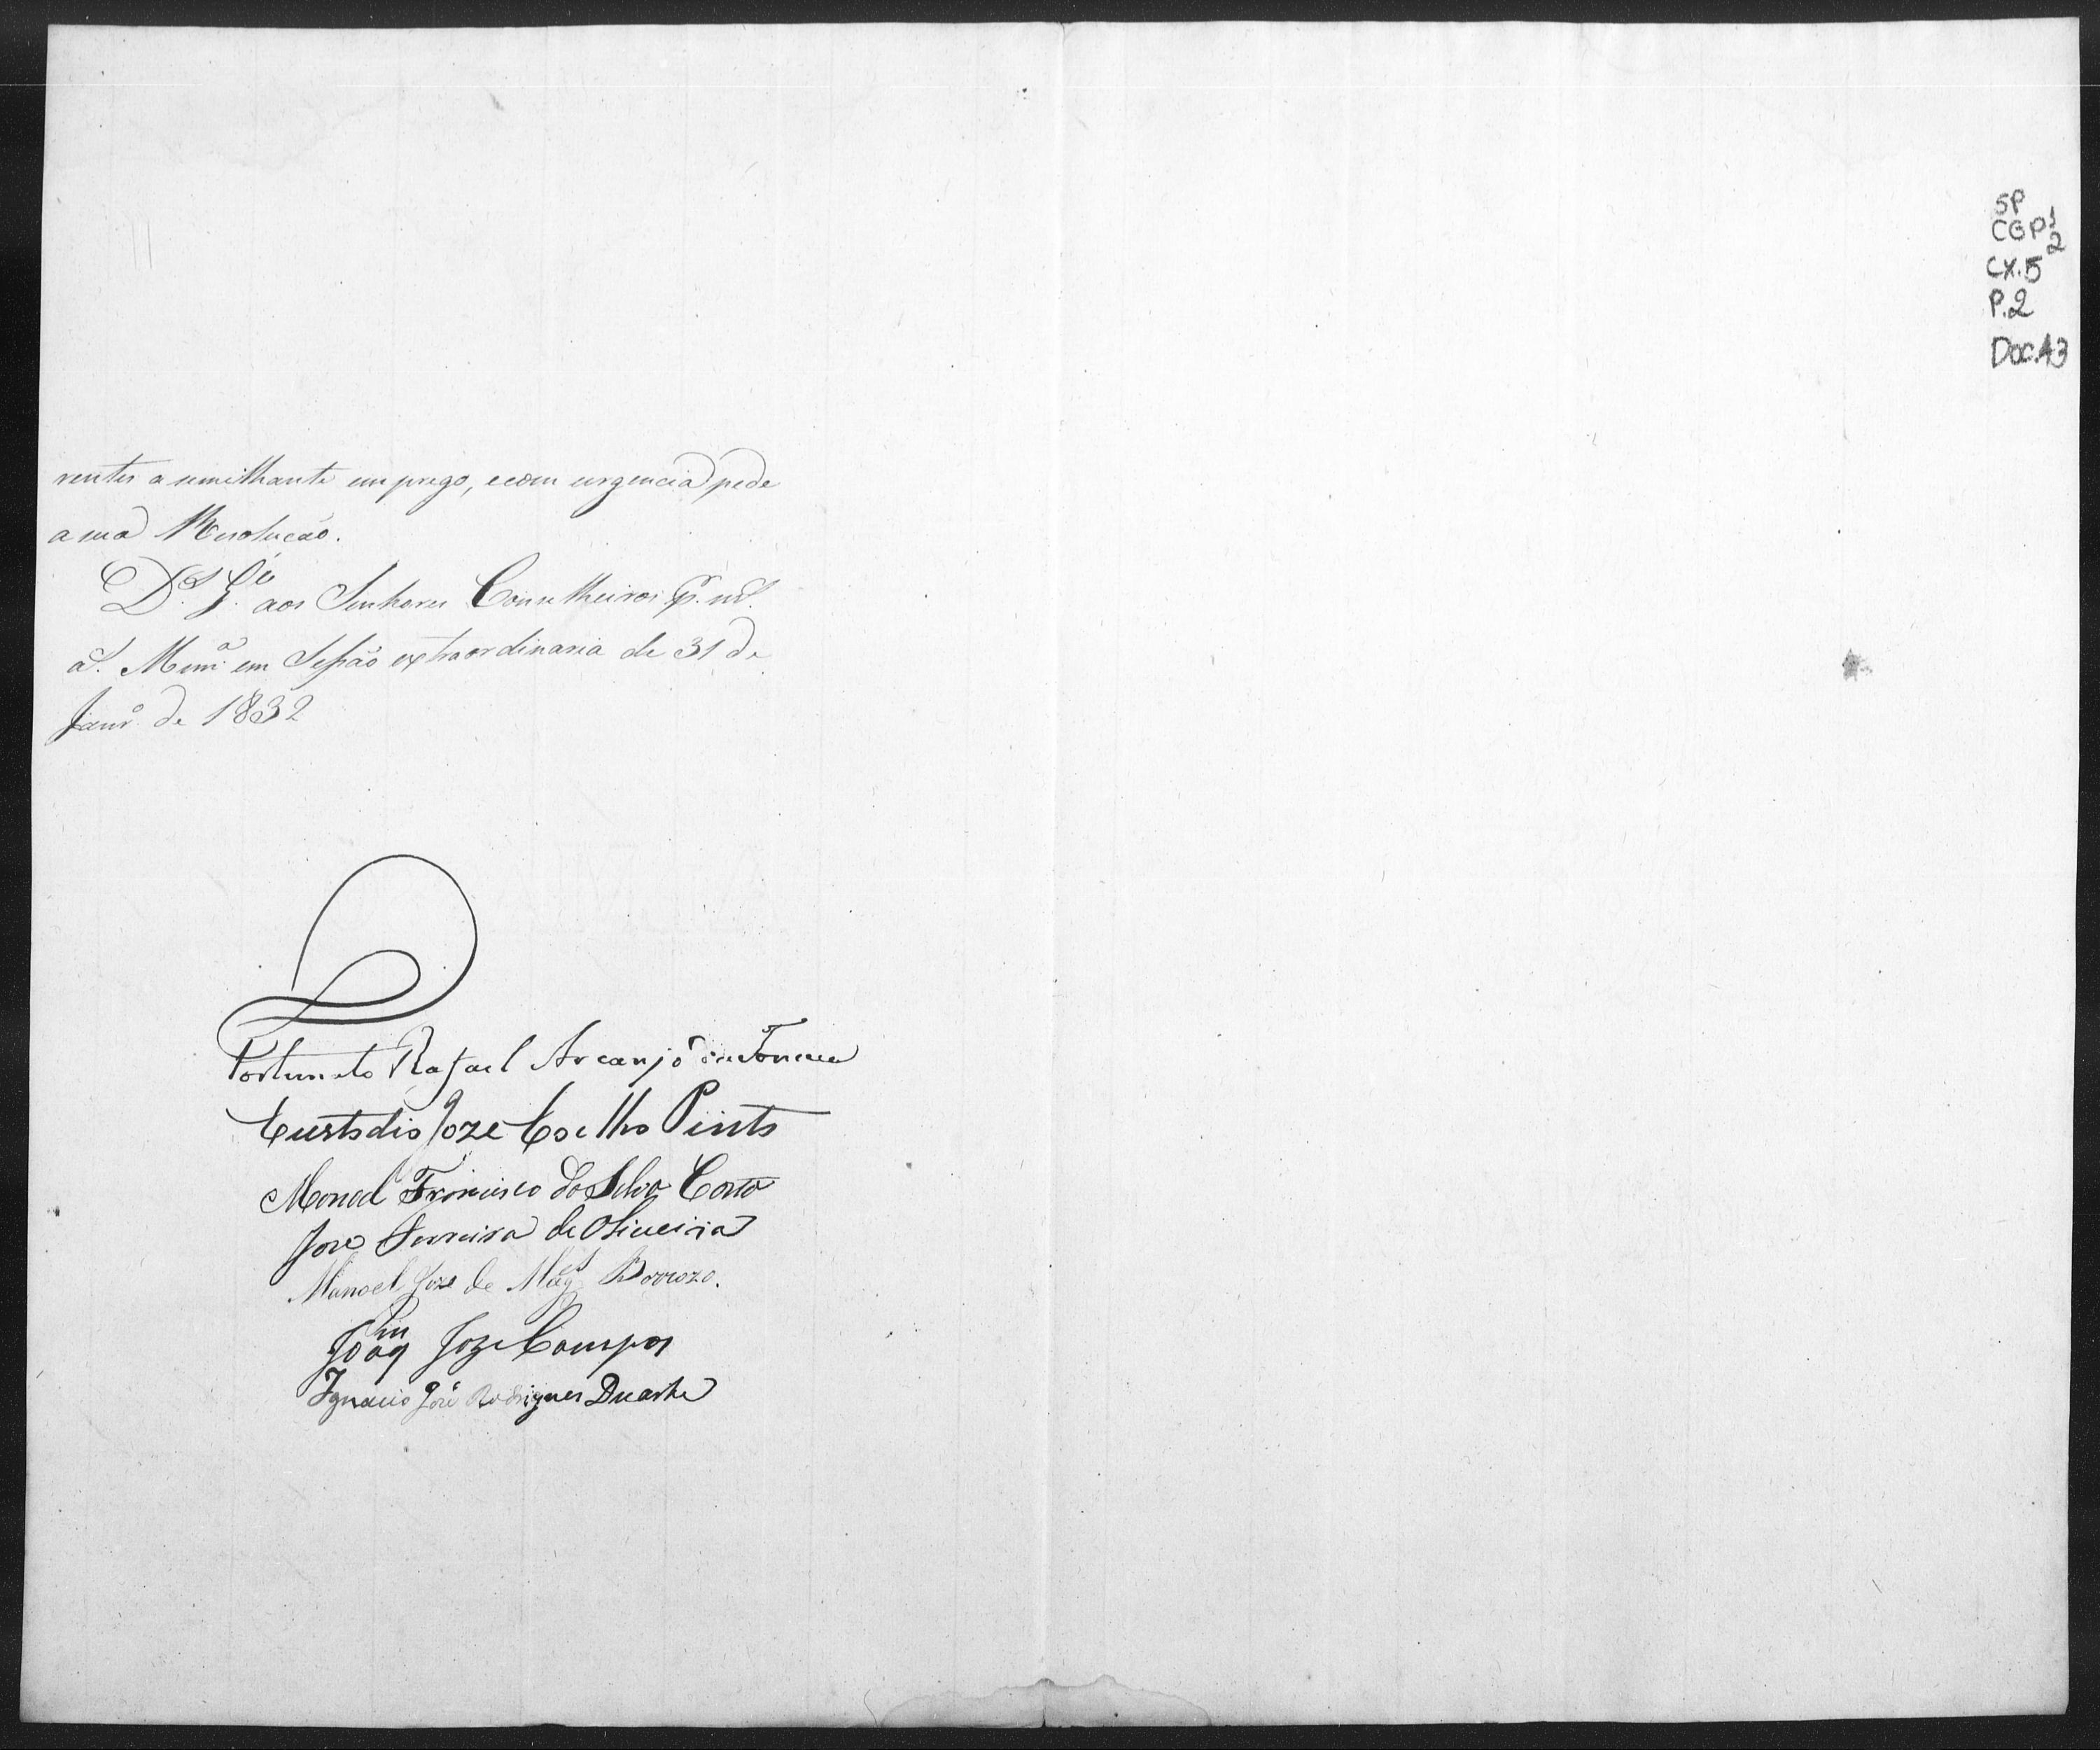 rentes a similhante emprego, ecom urgencia pede
a sua Resolução.
D.s G.e aos Senhores Conselheiros p. m.s
a.s Mem.a em Sessão extraordinaria de 31 de
Janr.o de 1832
Fortunato Rafael Arcanjo da Fonseca
Custodio Joze Coelho Pinto
Manoel Francisco da Silva Costa
Joze Ferreira de Oliveira
Manoel Joze de Mag.es Borrozo.
Joaq.im Joze Campos
Ignacio José Rodrigues Duarte
SP
CGP1
2
CX.5
P.2
Doc.13